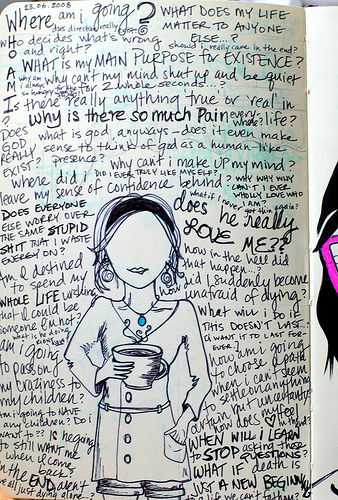 23.06.2008
Where am i going?
does direction really exist?
WHAT DOES MY LIFE
MATTER TO ANYONE
ELSE...?
who decides what's wrong
and right?
should i really care in the end?
WHO AM I
WHAT is my MAIN PURPOSE for EXISTENCE?
why am i always so hungry
why can't my mind shut up and be quiet
for 2 whole seconds...?
Is there really anything true or real in life?
why is there so much pain everywhere?
DOES GOD REALLY EXIST?
what is god, anyways - does it even make
sense to think of god as a human-like
presence?
why can't i make up my mind?
where did i
leave my sense of confidence behind?
DID I EVER TRULY LIKE MYSELF?
WHY WHY WHY CAN'T I EVER WHOLLY LOVE WHO I AM?
what if i never get thin again?
DOES EVERYONE
ELSE WORRY OVER
THE SAME STUPID
SHIT THAT I WASTE
ENERGY ON?
does he really
LOVE ME??
how in the hell did
that happen...?
Am i destined
to spend my
WHOLE LIFE wishing
that i could be
someone i'm not?
how did i suddenly become
unafraid of dying?
what will i do if
THIS DOESN'T LAST..?
(i WANT IT TO LAST FOREVER!)
am i going
to pass on
my craziness to
my children?
am i going to HAVE
any children? Do i
WANT to??
am i going
to choose a path
when i can't seem
to settle on anything
certain but uncertainty
how does my feel
WHEN WILL I LEARN
to STOP asking these
QUESTIONS?
is he going
to still want me
when i come
back?
in the END aren't
we all just dying alone..?
WHAT IF death is
JUST A NEW BEGINNING
to a life we can't fathom?